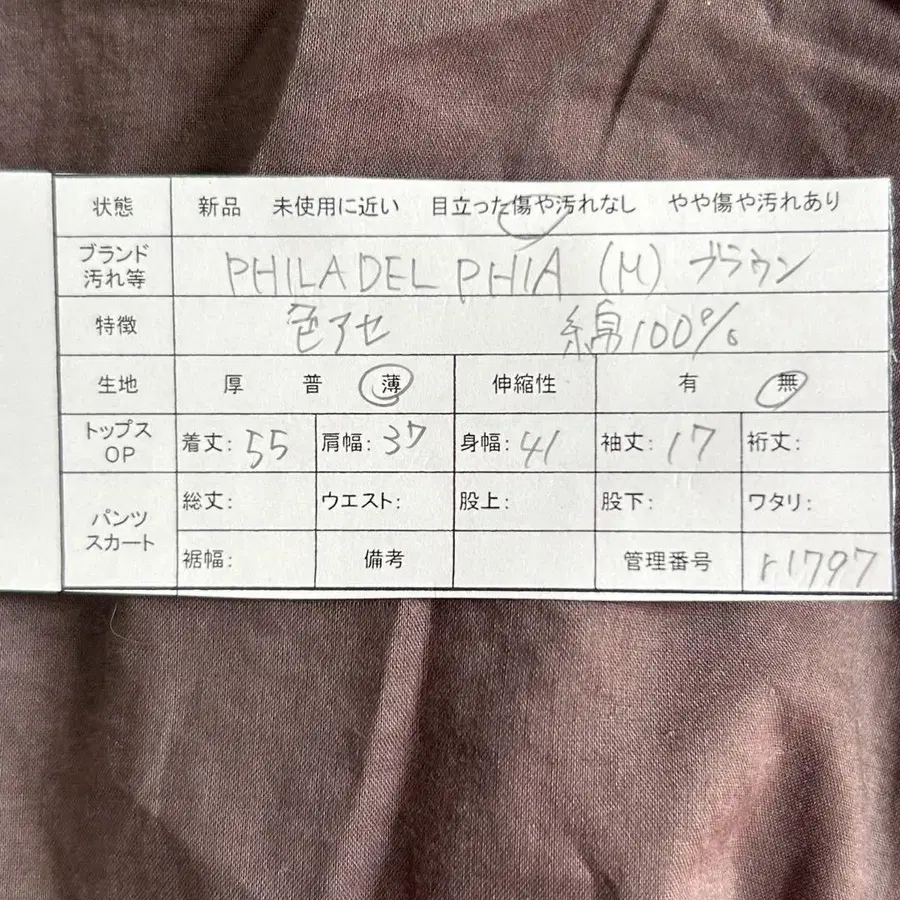 状態 新品 未使用に近い 目立った傷や汚れなし やや傷や汚れあり
ブランド
汚れ等 PHILADELPHIA (M) ブラウン
特徴 色アセ 綿100%
生地 厚 普 薄 伸縮性 有 無
トップス
OP 着丈: 55 肩幅: 37 身幅: 41 袖丈: 17 裄丈:
パンツ
スカート 総丈: ウエスト: 股上: 股下: ワタリ:
裾幅: 備考 管理番号 r1797